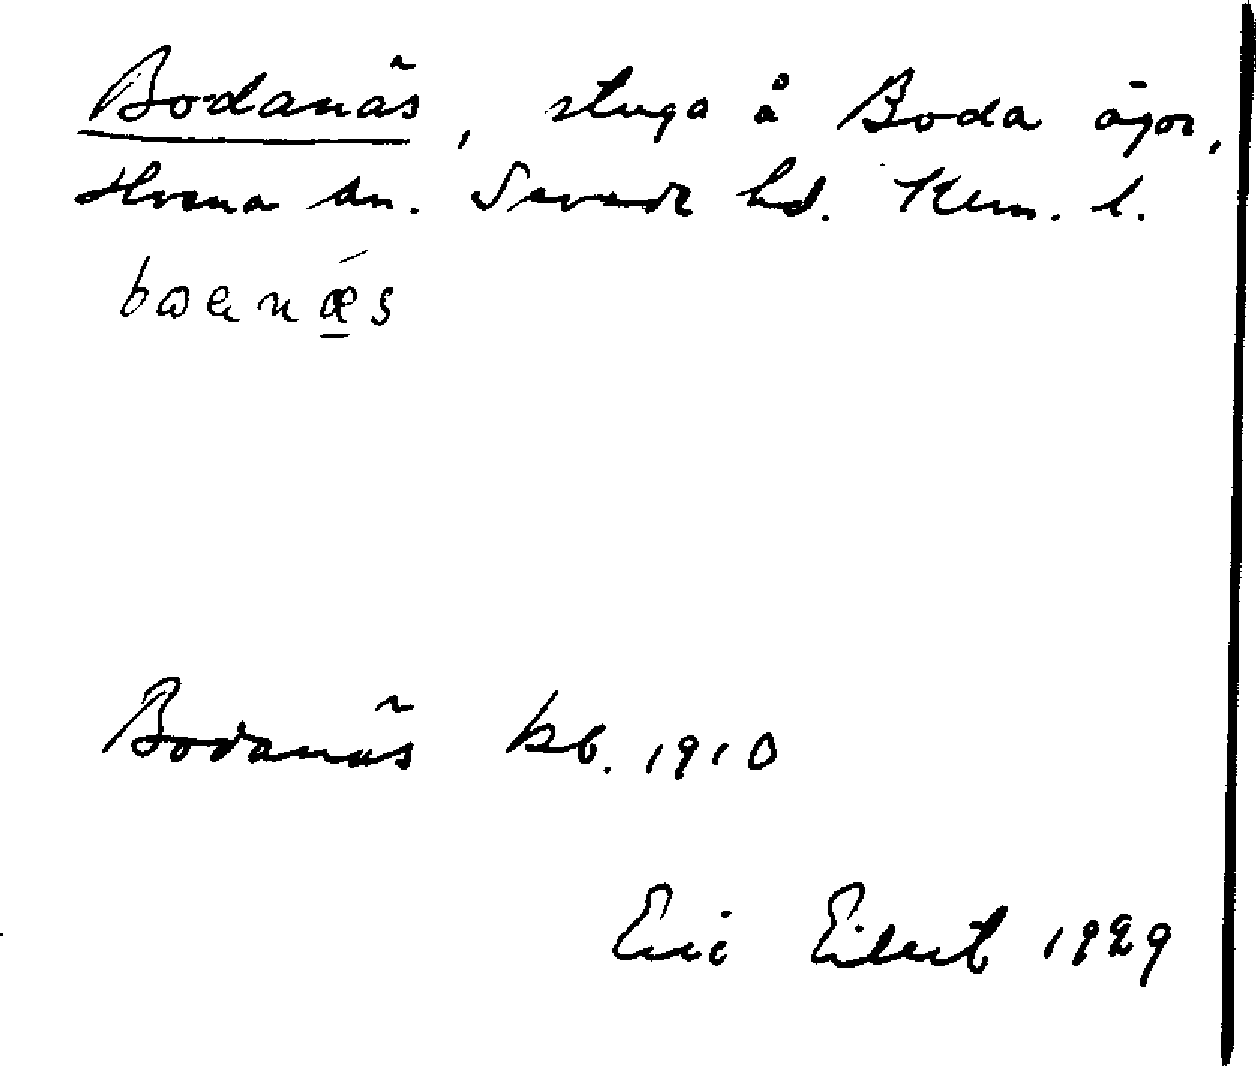 Bodanäs, stuga å Boda ägor,
Hvena sn. Sevede hd. Klm. l.
bɷenǽs
Bodanäs kb. 1910
Eric Eilert 1929